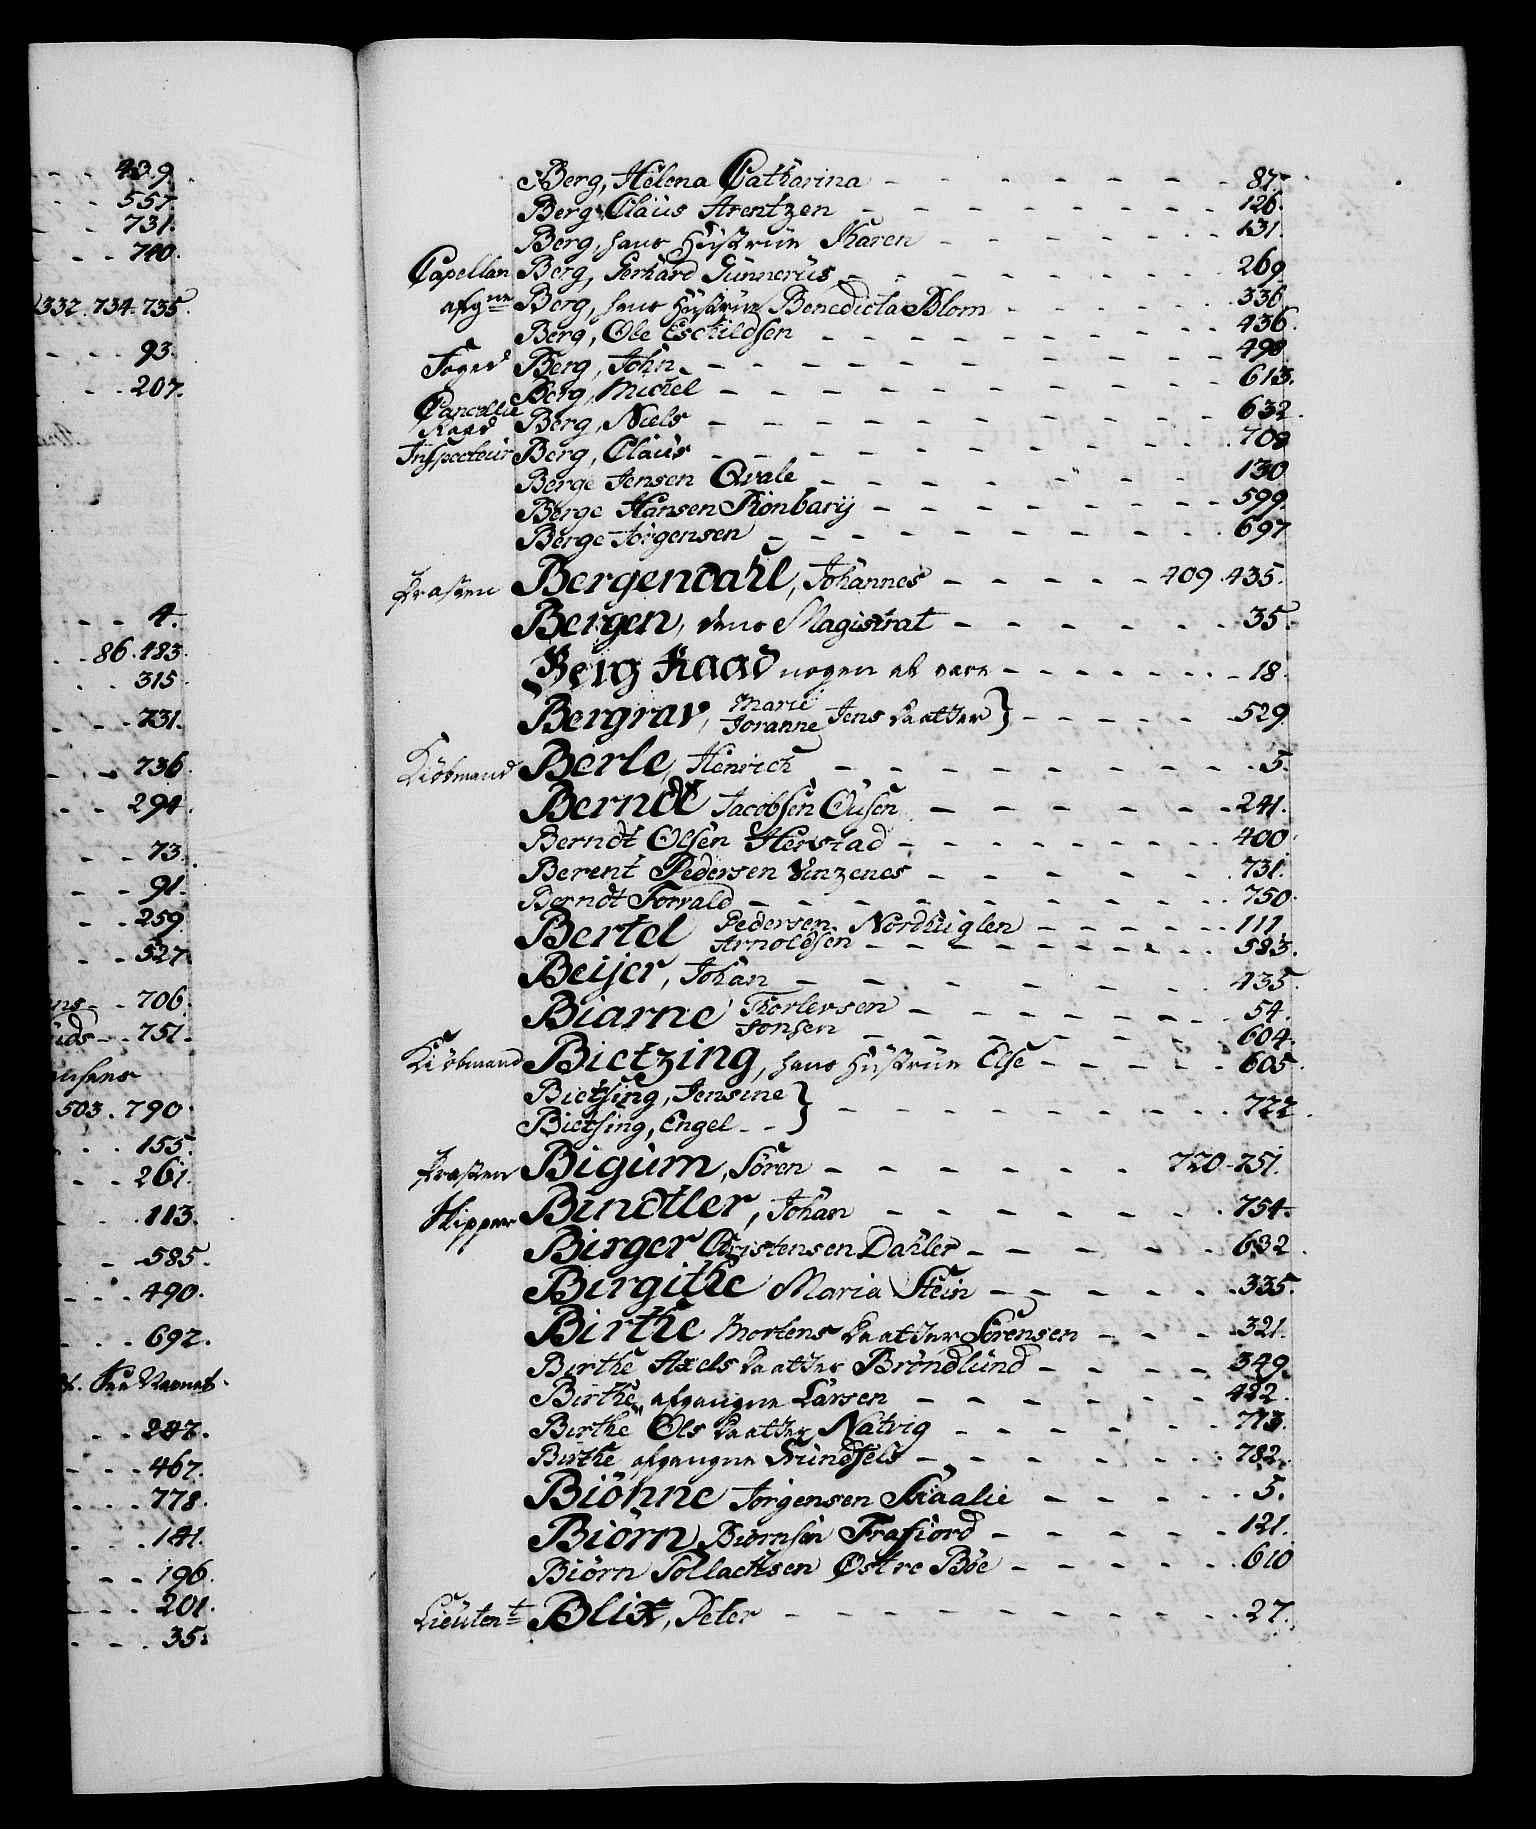 - - - 439.
- - - 557.
- - 731.
- - - 740.
332. 734. 735.
- - - 93.
- - 207.
- - 4.
- - 86. 483.
- - 315
- - 731.
- - 736.
- - 294.
- - 73.
- - 91.
- - 259
- - 527.
- - 706.
- - 751.
503. 790
- - 155.
- - 261.
- - 113.
- - 585.
- - 490.
- - 692.
- - 247.
- - 467.
- - 778.
- - 141.
- - 196.
- - 201.
- - 35.
Berg, Helena Catharina - - - 87.
Berg, Claüs Arentzen - - - 126.
Berg, hans Hüstrüe Karen - - - 131.
Capellan Berg, Gerhard Günnerüs - - - 269
afgne Berg, hans Hüstrües Benedicta Blom - - - 336
Berg, Ole Eschildsen - - - 436.
Foged Berg, John - - - 490
Berg, Michel - - - 613.
Cancellie Raad Berg, Niels - - - 632.
Inspecteür Berg, Claüs - - - 709
Berge Jensen Qvale - - - 130
Berge Hansen Rönbarij - - - 599.
Berge Jörgensen - - - 697
Præsten Bergendahl, Johannes - - - 409. 435.
Bergen, dens Magistrat - - - 35.
Berg Raad nogen at være - - - 18.
Bergrav, Marie Joranne Jens Daatter } - - - 529.
Kiöbmand Berle, Henrich - - - 5.
Berndt Jacobsen Ousen - - - 241.
Berndt Olsen Herstad - - - 400
Berent Pedersen Vinzenes - - - 731.
Berndt Forvald - - - 750.
Bertel Pedersen Nordhüglen - - - 111.
Arnoldsen - - - 583.
Beijer, Johan - - - 435.
Biarne Thorlevsen - - - 54.
Jonsen - - - 604.
Kiöbmand Bietzing, hans Hüstrüe Else - - - 605.
Bietsing, Jensine }
Bietsing, Engel - - } - - - 722
Præsten Bigüm, Sören - - - 720. 751.
Skipper Bindtler, Johan - - - 754.
Birger Christensen Dahler - - - 632
Birgithe Maria Stein - - - 335.
Birthe Mortens Daatter Sörensen - - - 321.
Birthe Axels Daatter Bröndlünd - - - 349
Birthe, afgangne Larsen - - - 422.
Birthe Ols Daatter Natvig - - - 713.
Birthe afgangne Gründsels - - - 782.
Biöhne Jörgensen Skaalie - - - 5.
Biörn Biörnsen Frafiord - - - 121.
Biörn Tollachsen Østre Böe - - - 610
Lieütent Blix, Peter - - - 27.